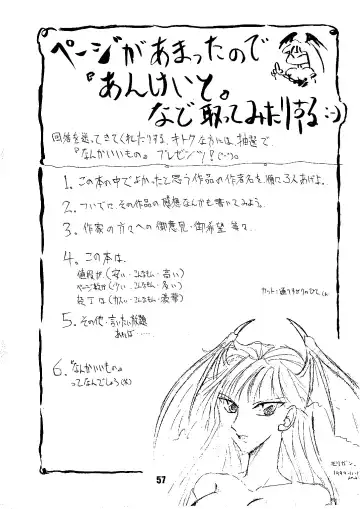 ページがあまったので
『あんけいと。
など取ってみたりする :-)
回答を送ってきてくれたりする、キトクな方には、抽選で、
『なんかいいもの』プレゼンツ！(^-^)。
1. この本の中でよかったと思う作品の作者名を順に3人あげよ。
2. ついでに、その作品の感想なんかも書いてみよう。
3. 作家の方々への御意見・御希望 等々
4. この本は、
値段が、(安い・こんなもん・高い)
ページ数が (少い・こんなもん・多い)
装丁は (カスい・こんなもん・豪華)
5. その他・言いたい放題
あれば……
6. "なんかいいもの"
ってなんでしょう(笑)
カット：通りすがりのひとくん
モリガン。
57